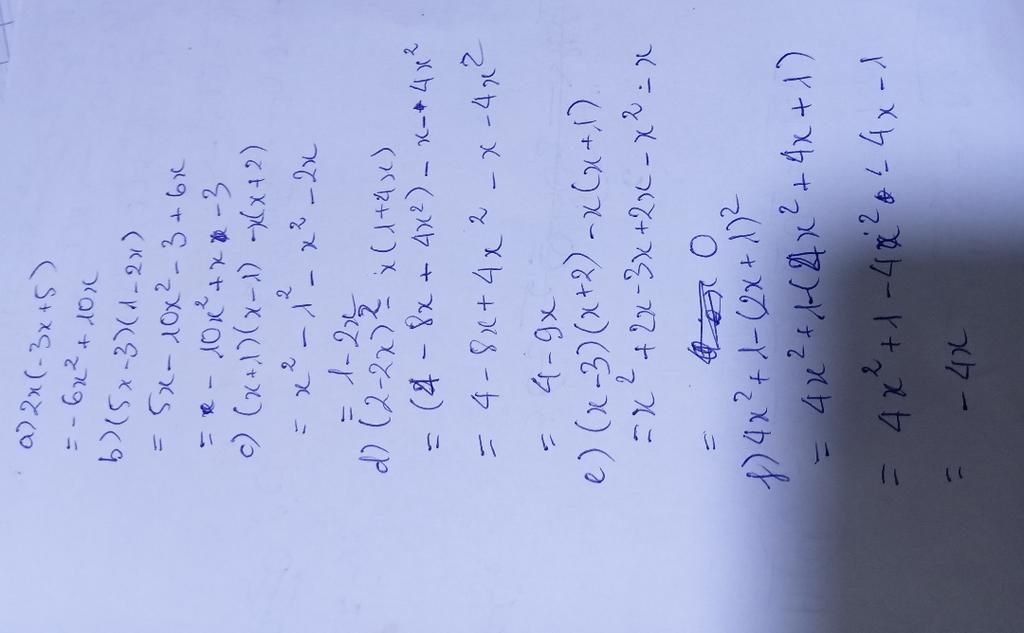 a) 2x(-3x+5)
= -6x² + 10x
b) (5x-3)(1-2x)
= 5x - 10x² - 3 + 6x
= - 10x² + x - 3
c) (x+1)(x-1) -x(x+2)
= x² - 1² - x² - 2x
= 1-2x
d) (2-2x)² - x(1+4x)
= (4 - 8x + 4x²) - x - 4x²
= 4 - 8x + 4x² - x - 4x²
= 4 - 9x
e) (x-3)(x+2) - x(x+1)
= x² + 2x - 3x + 2x - x² - x
= 0
f) 4x² + 1 - (2x+1)²
= 4x² + 1 - (4x² + 4x + 1)
= 4x² + 1 - 4x² - 4x - 1
= - 4x